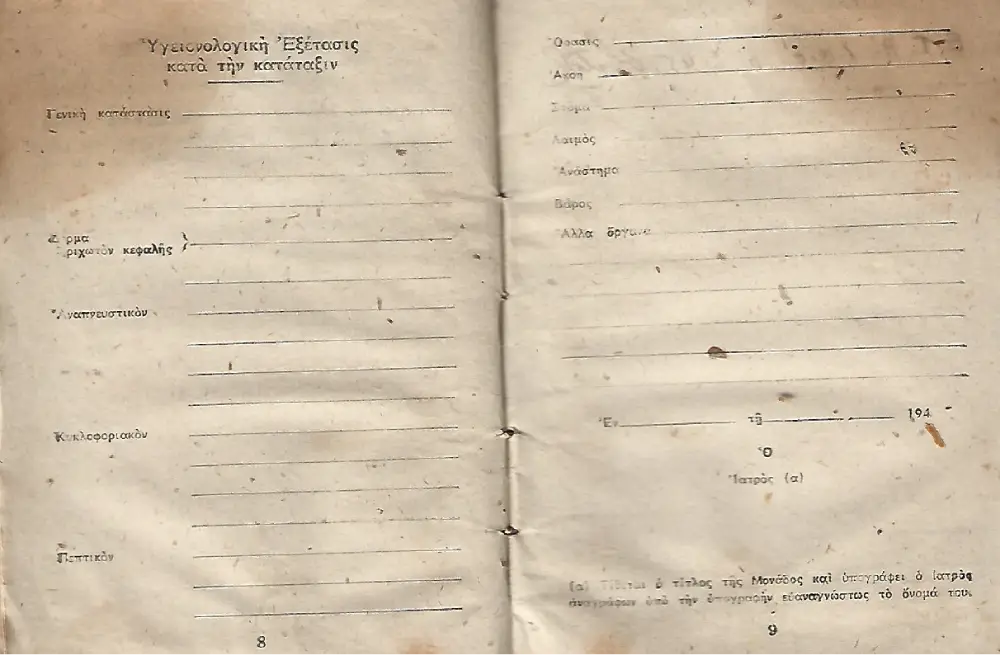 Ὑγειονολογικὴ Ἐξέτασις
κατὰ τὴν κατάταξιν
Γενικὴ κατάστασις
Δέρμα
Τριχωτὸν κεφαλῆς
Ἀναπνευστικὸν
Κυκλοφοριακὸν
Πεπτικὸν
8
Ὅρασις
Ἀκοὴ
Στόμα
Λαιμὸς
Ἀνάστημα
Βάρος
Ἄλλα ὄργανα
Ἐν τῇ 194
Ὁ
Ἰατρὸς (α)
(α) Τίθεται ὁ τίτλος τῆς Μονάδος καὶ ὑπογράφει ὁ Ἰατρὸς
ἀναγράφων ὑπὸ τὴν ὑπογραφὴν εὐαναγνώστως τὸ ὄνομά του.
9